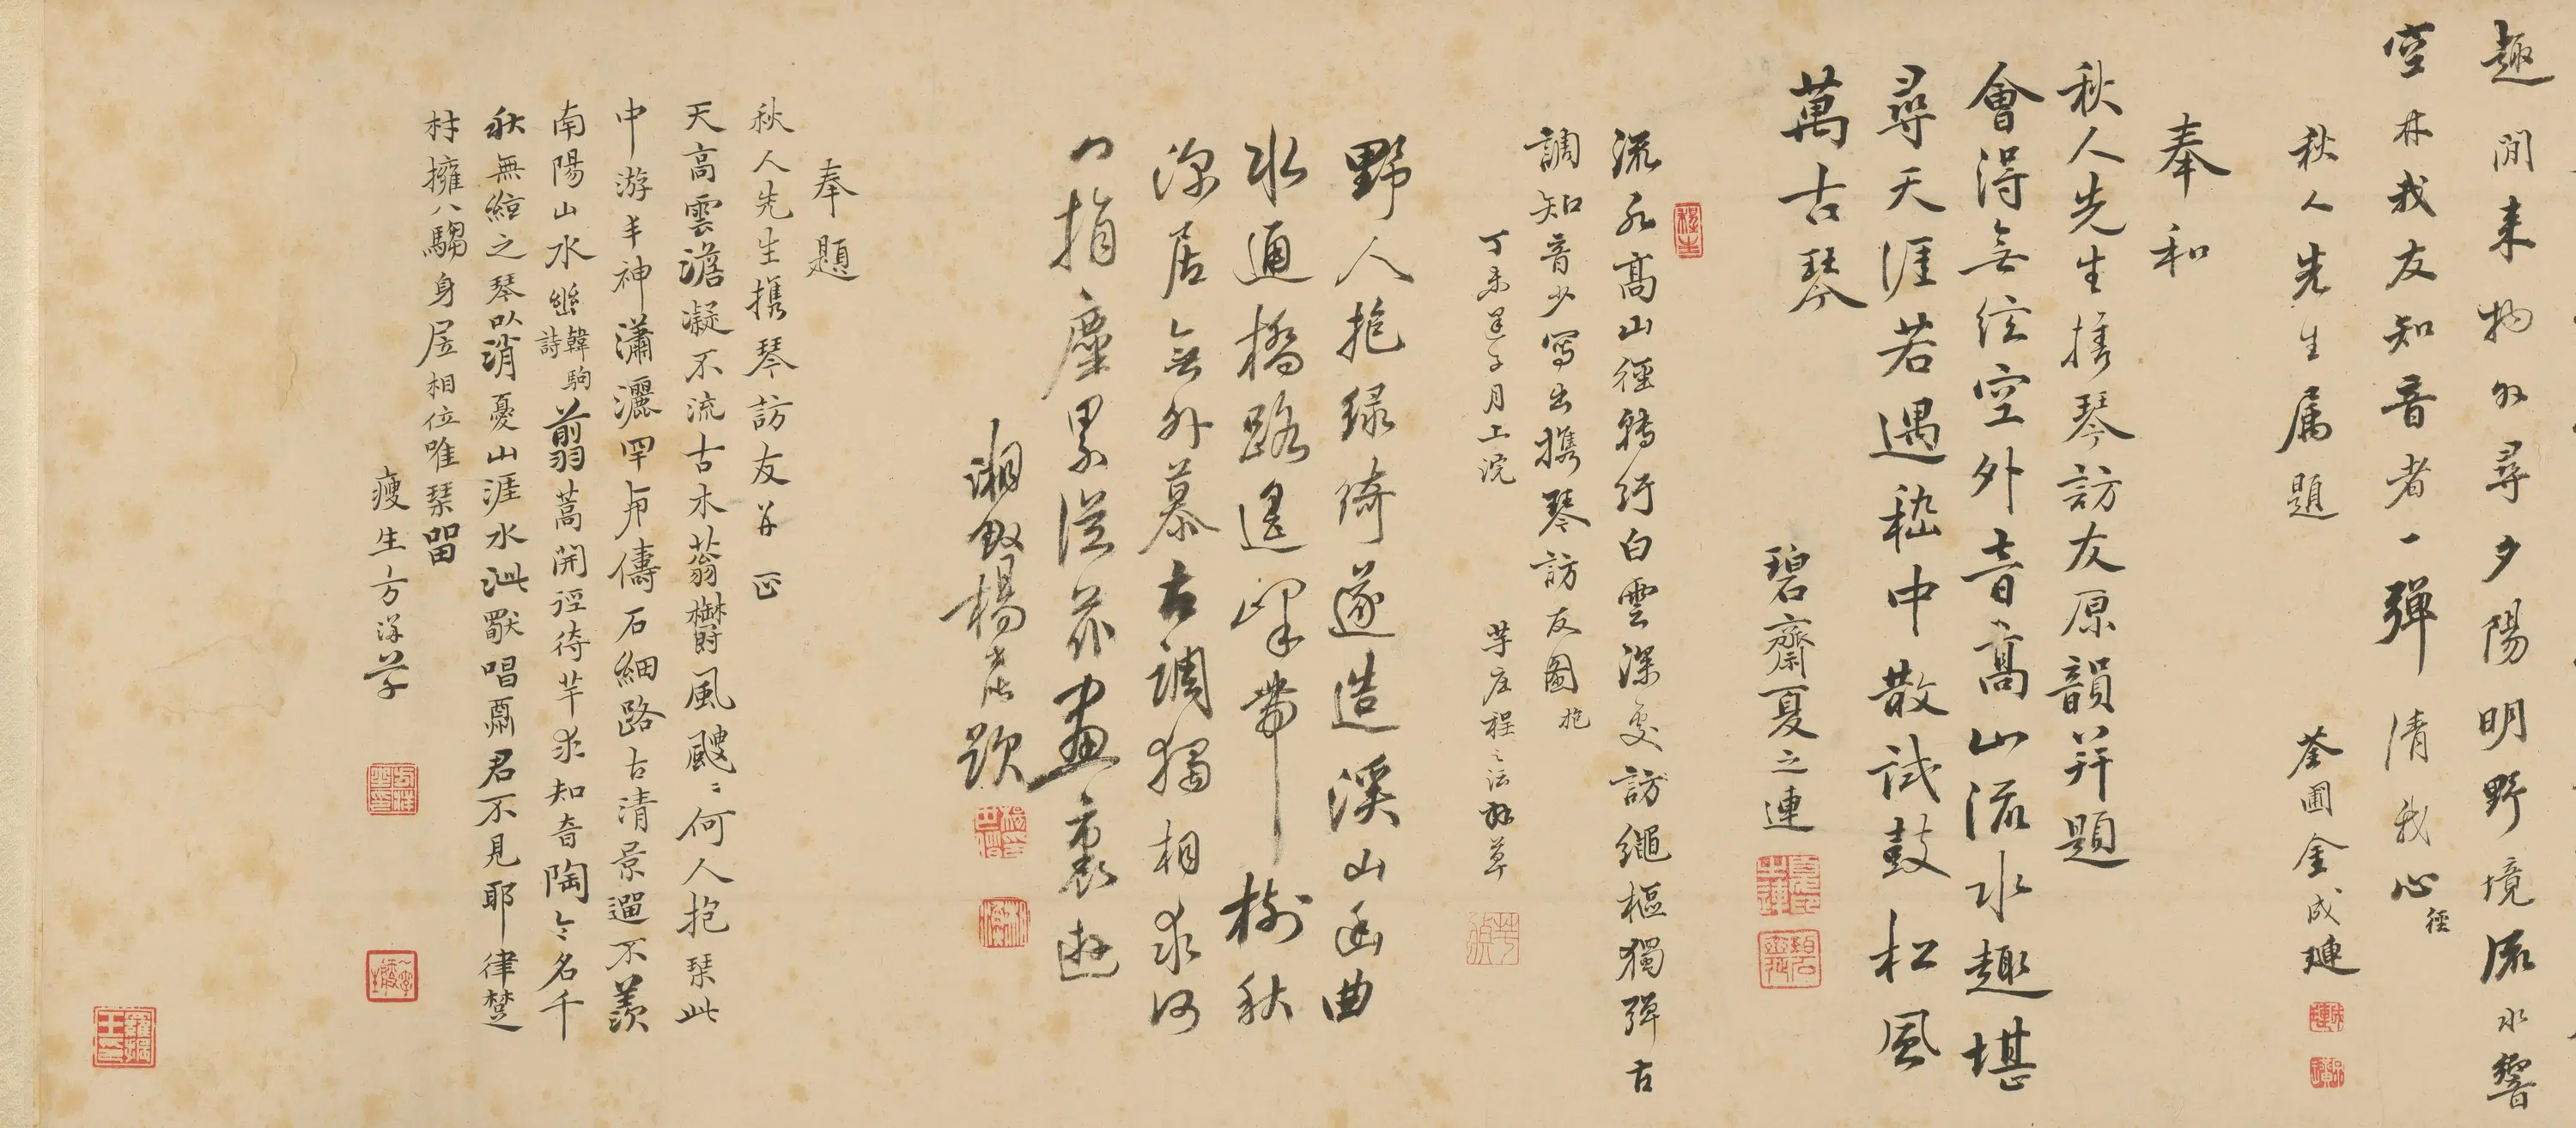 趣閒来物外尋夕陽明野境流水響
空林我友知音者一彈清我心
徑
秋人先生属題
荃圃金成璉
奉和
秋人先生携琴訪友原韻并題
會得無弦空外音高山流水趣堪
尋天涯若遇嵇中散試鼓松風
萬古琴
碧齋夏之連
流水高山徑轉行白雲深處訪繩樞獨彈古
調知音少寫出携琴訪友圖
抱
丁未子月上浣
芋庄程之法草
野人抱綠綺遂造溪山幽曲
水通橋路遙峰帶樹秋
深居無外慕古調獨相求何
指塵累從茲畫裏遊
湘楊題
奉題
秋人先生携琴訪友并正
天高雲澹凝不流古木蓊欝風颼〻何人抱琹此
中游丰神瀟灑罕与儔石細路古清景遛不羨
南陽山水幽
韓駒詩
翦蒿開徑待羊求知音陶令名千
秋無絃之琴以消憂山涯水涯歌唱酬君不見耶律楚
材擁八騶身居相位唯琹留
瘦生方洋草